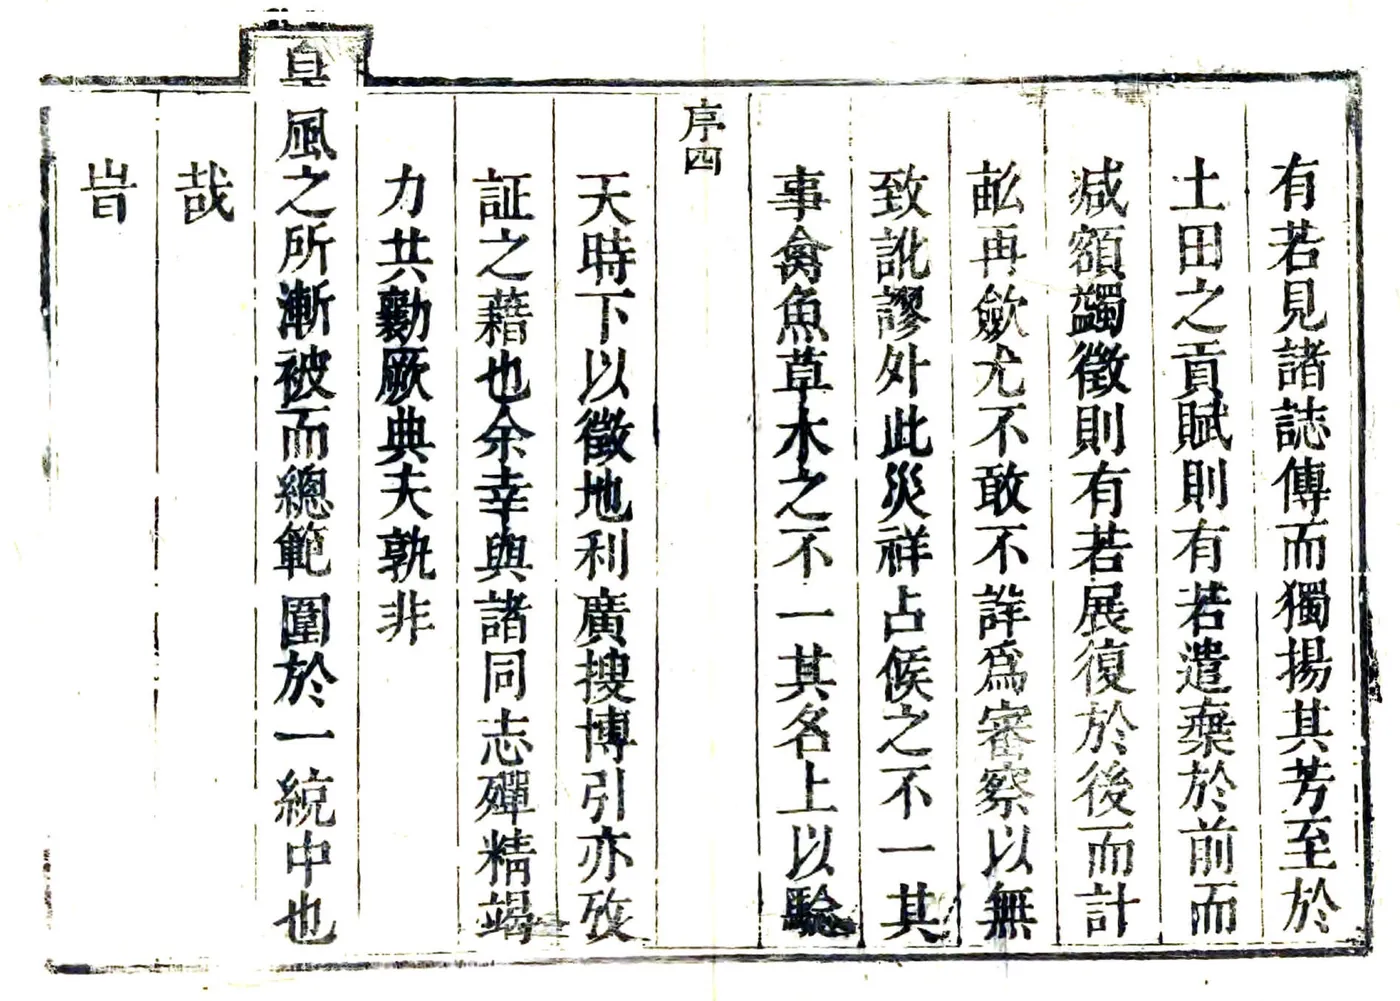 有若見諸誌傳而獨揚其芳至於
土田之貢賦則有若遣棄於前而
減額蠲徵則有若展復於後而計
畝再歛尤不敢不詳爲審察以無
致訛謬外此災祥占候之不一其
事禽魚草木之不一其名上以驗
序四
天時下以徵地利廣搜博引亦攷
証之藉也余幸與諸同志殫精竭
力共勷厥典夫孰非
皇風之所漸被而總範圍於一統中也
哉
旹